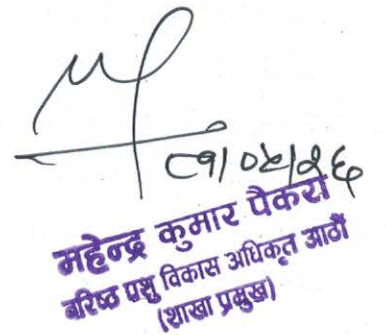 ८१/०५/२६
महेन्द्र कुमार पैकरा
बरिष्ठ पशु विकास अधिकृत आठौं
(शाखा प्रमुख)